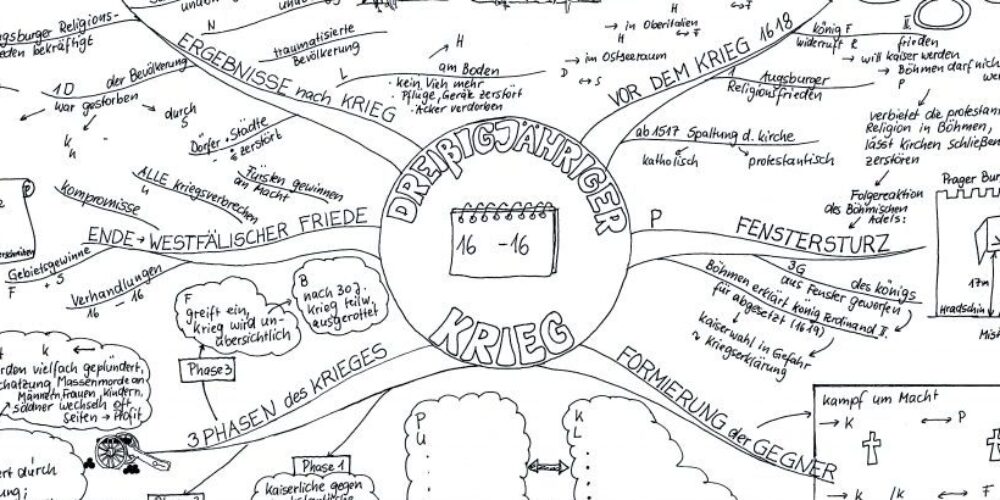 DREIßIGJÄHRIGER
KRIEG
16 -16
ERGEBNISSE nach KRIEG
N
traumatisierte
Bevölkerung
L
H
am Boden
· kein Vieh mehr
· Pflüge, Geräte zerstört
· Äcker verdorben
Religions-
eden bekräftigt
1D der Bevölkerung
war gestorben
durch
S
k
h
Dörfer · Städte
zerstört
ENDE → WESTFÄLISCHER FRIEDE
ALLE Kriegsverbrechen
Fürsten gewinnen
an Macht
Kompromisse
Gebietsgewinne
F + S
Verhandlungen
16 - 16
3 PHASEN des KRIEGES
Phase 3
F
greift ein,
Krieg wird un-
übersichtlich
B
nach 30J.
Krieg teilw.
ausgerottet
k
rden vielfach geplündert,
Massenmorde an
Männern, Frauen, Kindern,
Söldner wechseln oft
Seiten → Profit
ert durch
Phase 1
kaiserliche gegen
VOR DEM KRIEG 1618
→ in Oberitalien
H ↔ F
H
→ im Ostseeraum
D ↔ S
König F II.
widerruft R frieden
→ will Kaiser werden
→ Böhmen darf nich
P
1 Augsburger
Religionsfrieden
ab 1517 Spaltung d. Kirche
katholisch
protestantisch
verbietet die protestan
Religion in Böhmen,
lässt Kirchen schließen
zerstören
Folgereaktion
des Böhmischen
Adels:
P FENSTERSTURZ
3G des Königs
aus Fenster geworfen
Böhmen erklärt König Ferdinand II.
für abgesetzt (1619)
Kaiserwahl in Gefahr
Kriegserklärung
Prager Bur
17m
Hradschin
Mis
FORMIERUNG der GEGNER
P
U
K
L
Kampf um Macht
→ K ← → P
→ K /K ← → F